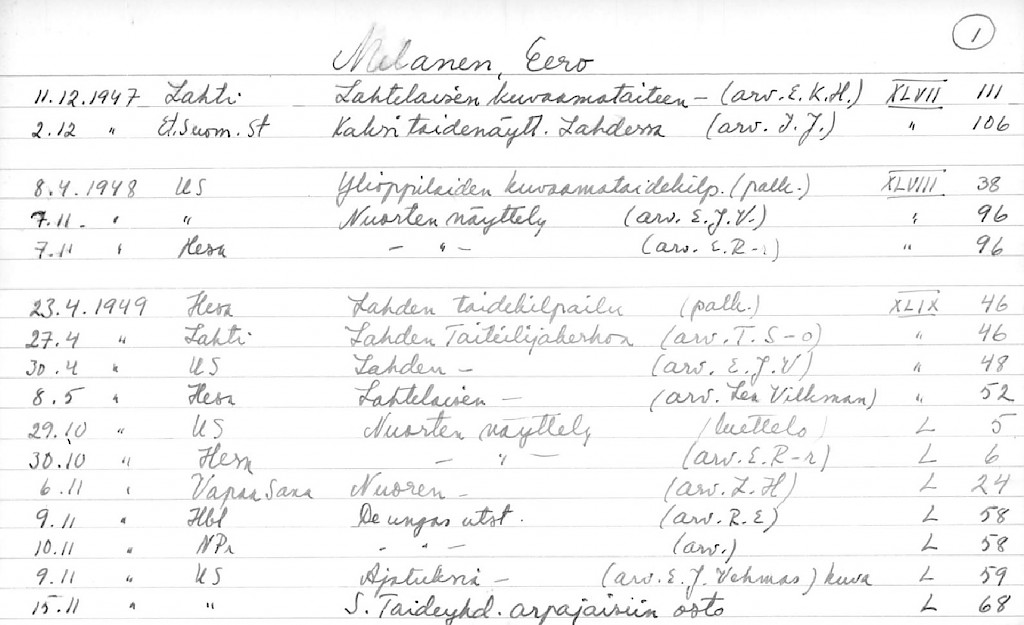 1
Nelanen, Eero
11.12.1947 Lahti Lahtelaisen kuvaamataiteen – (arv. E.K.H.) XLVII 111
2.12 " Et.Suom. St Kaksi taidenäytt. Lahdessa (arv. J.J.) " 106
8.4.1948 US Ylioppilaiden kuvaamataidekilp. (palk.) XLVIII 38
7.11. " " Nuorten näyttely (arv. E.J.V.) " 96
7.11 " Hesa – " – (arv. E.R-r) " 96
23.4.1949 Hesa Lahden taidekilpailu (palk.) XLIX 46
27.4 " Lahti Lahden Taiteilijakerhon (arv. T.S-o) " 46
30.4 " US Lahden – (arv. E.J.V) " 48
8.5 " Hesa Lahtelaisen – (arv. Lea Vilkman) " 52
29.10 " US Nuorten näyttely (luettelo) L 5
30.10 " Hesa – " – (arv. E.R-r) L 6
6.11 " Vapaa Sana Nuoren – (arv. L.H) L 24
9.11 " Hbl De ungas utst. (arv. R.E) L 58
10.11 " NPr – " – (arv.) L 58
9.11 " US Ajatuksia – (arv. E.J. Vehmas) kuva L 59
15.11 " " S. Taideyhd. arpajaisiin osto L 68